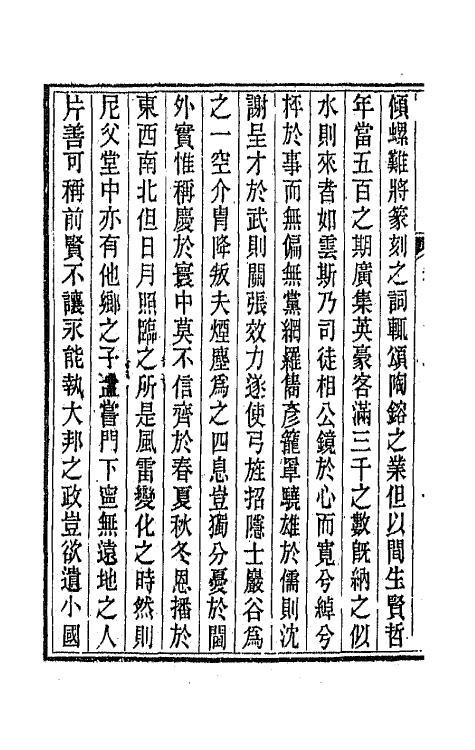 傾螺難將篆刻之詞輒頌陶鎔之業但以間生賢哲
年當五百之期廣集英豪客滿三千之數旣納之似
水則來者如雲斯乃司徒相公鏡於心而寬兮綽兮
枰於事而無偏無黨網羅儁彥籠罩驍雄於儒則沈
謝呈才於武則關張效力遂使弓旌招隱士巖谷爲
之一空介胄降叛夫煙塵爲之四息豈獨分憂於閫
外實惟稱慶於寰中莫不信齊於春夏秋冬恩播於
東西南北但日月照臨之所是風雷變化之時然則
尼父堂中亦有他鄉之子孟嘗門下寧無遠地之人
片善可稱前賢不讓永能執大邦之政豈欲遺小國